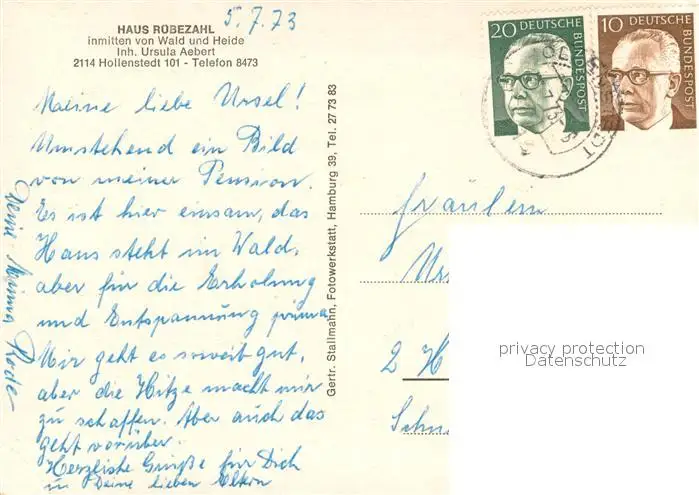 5.7.73
HAUS RÜBEZAHL
inmitten von Wald und Heide
Inh. Ursula Aebert
2114 Hollenstedt 101 - Telefon 8473
Meine liebe Ursel!
Umstehend ein Bild
von meiner Pension.
Es ist hier einsam, das
Haus steht im Wald,
aber für die Erholung
und Entspannung prima
Mir geht es soweit gut,
aber die Hitze macht mir
zu schaffen. Aber auch das
geht vorüber.
Herzliche Grüße für Dich
u. Deine lieben Eltern
Deine Minna
Gertr. Stallmahn, Fotowerkstatt, Hamburg 39, Tel. 27 73 83
20 DEUTSCHE BUNDESPOST
10 DEUTSCHE BUNDESPOST
Fräulein
Urs
2 H
Schn
privacy protection
Datenschutz